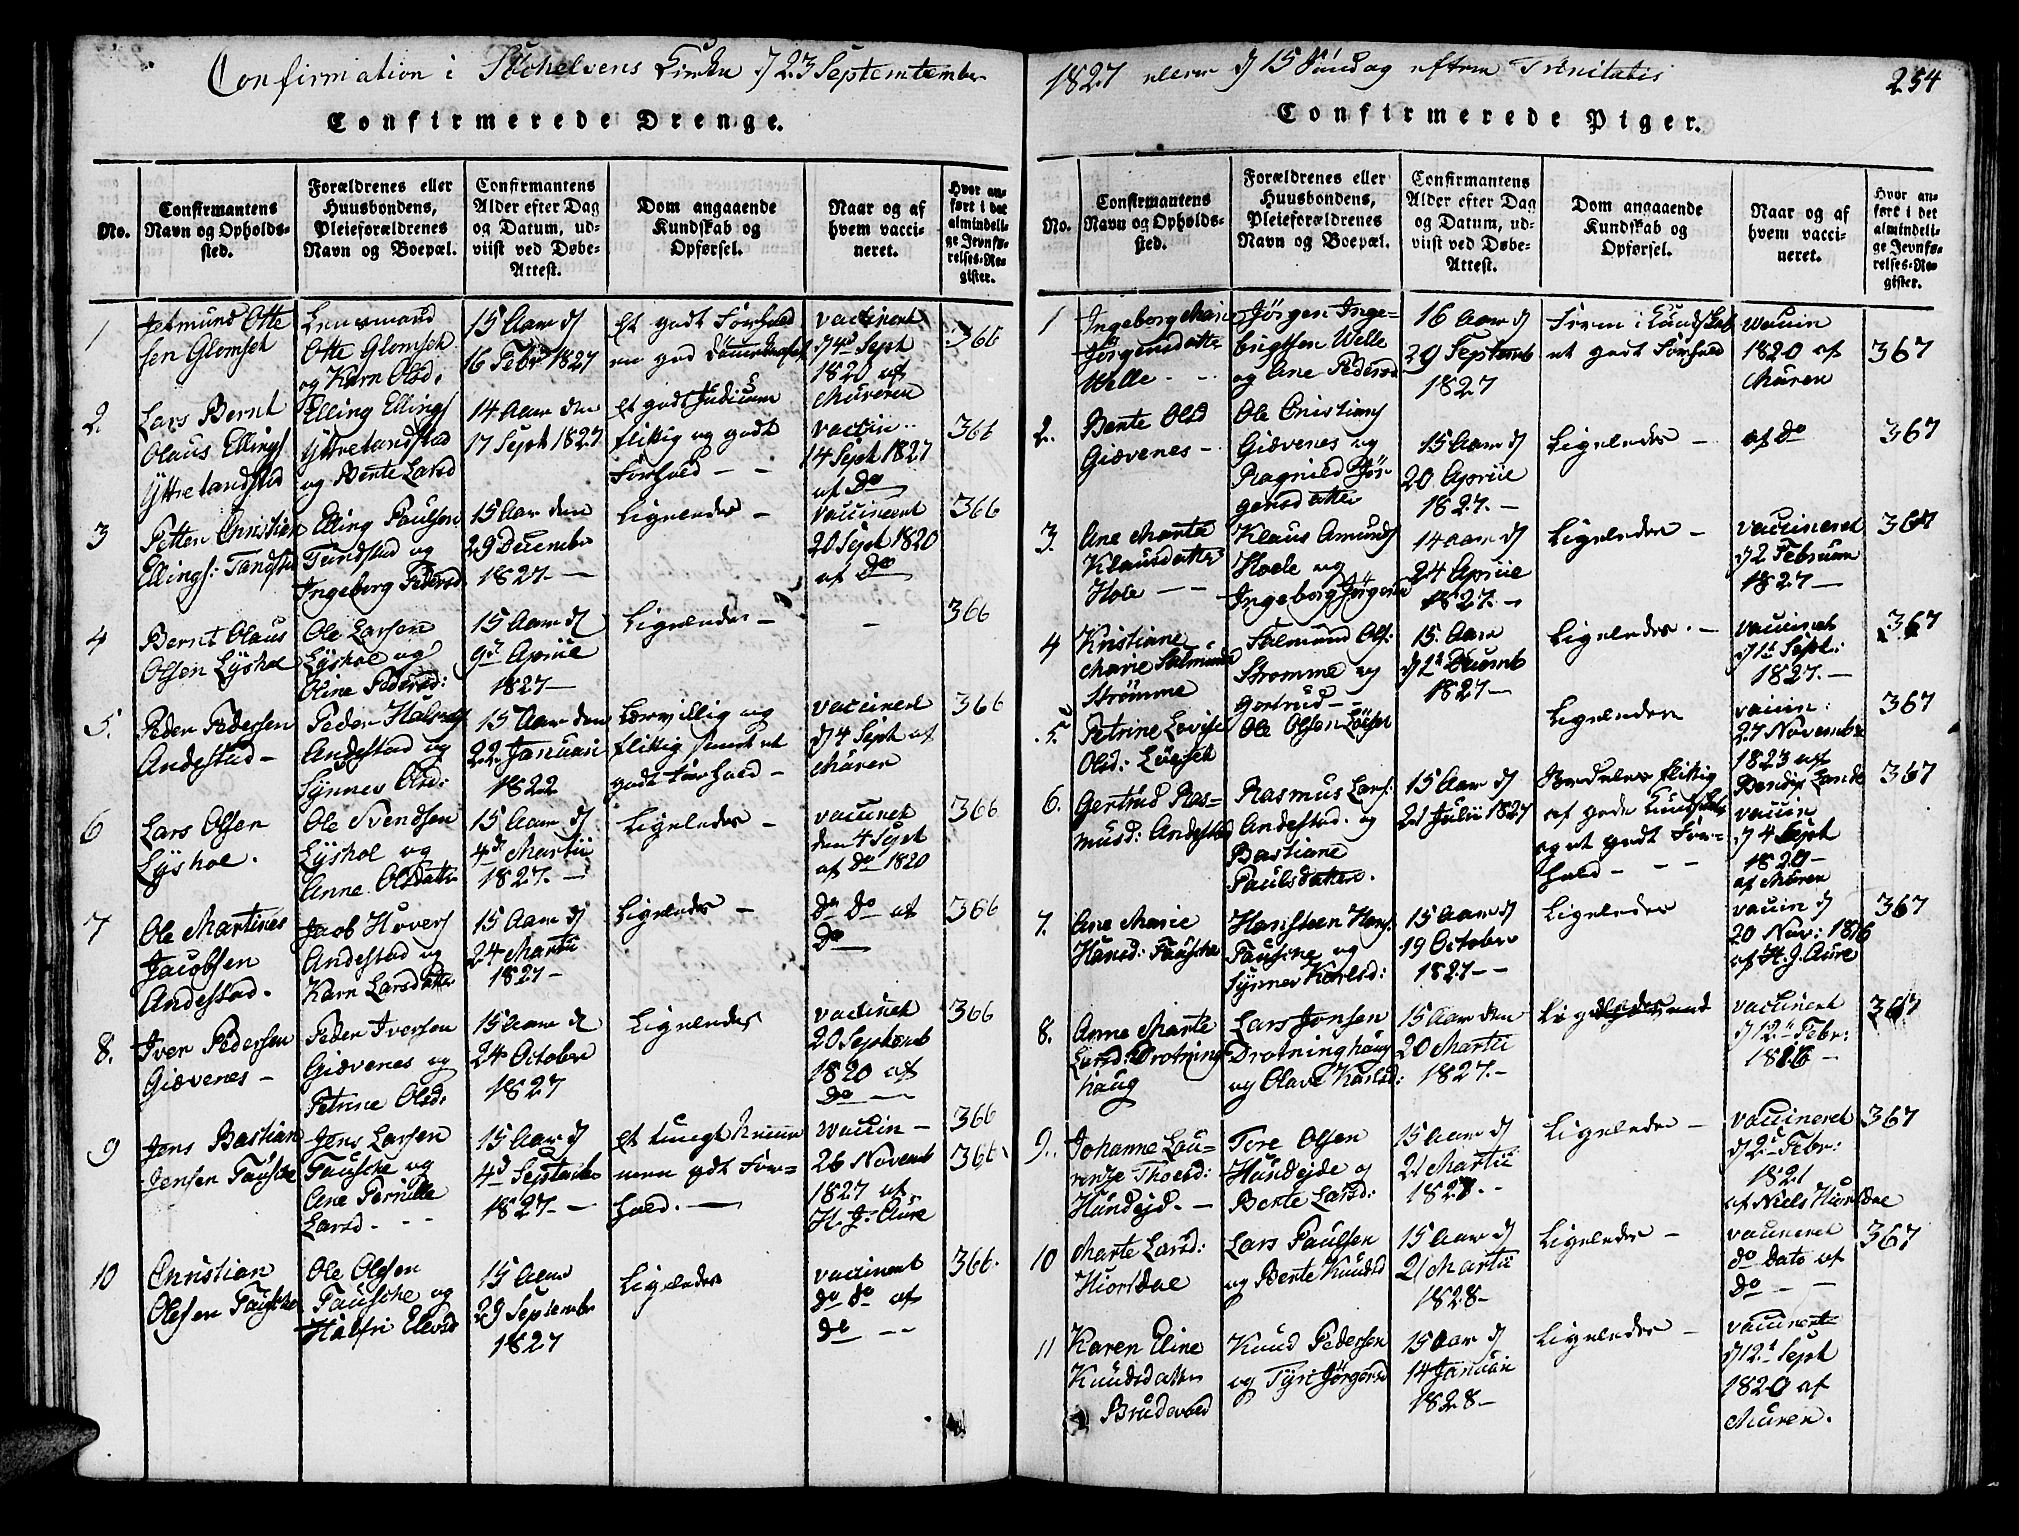 Confirmation i Stochelvens Kirke d 23 Septemtember
Confirmerede Drenge.
No.
Confirmantens
Navn og Opholds-
sted.
Forældrenes eller
Huusbondens,
Pleieforældrenes
Navn og Boepæl.
Confirmantens
Alder efter Dag
og Datum, ud-
viist ved Døbe-
Attest.
Dom angaaende
Kundskab og
Opførsel.
Naar og af
hvem vacci-
neret.
Hvor an-
ført i det
almindeli-
ge Jevnfø-
relses-Re-
gister.
1
Jetmund Otte
sen Glomseth
Lensmand
Otte Glomseth
og Karn Olsd:
15 Aar d
16 Febr 1827
et godt Forhold
en god
vaccineret
d 4d Sept
1820 af
Muren
366
2
Lars Bernt
Olaus Ellings
Ytretandstad
Elling Ellings
Ytretandstad
og Bente Larsd
14 Aar den
17 Sept 1827
et godt Judicium
flittig og godt
Forhold - -
vaccin..
14 Sept 1827
af Do
366
3
Petter Christian
Ellings: Tandstad
Elling Paulsen
Tandstad og
Ingeborg Pedersd
15 Aar den
29 December
1827. -
Ligeledes -
vaccineret
20 Sept 1820
af Do
366
4
Bernt Olaus
Olsen Lyshol
Ole Larsen
Lyshol og
Oline Pedersd:
15 Aar d
9d Apriil
1827 -
Ligeledes -
-
366
5.
Peder Pedersen
Andestad -
Peder
Andestad og
Synnev Olsd:
15 Aar den
22 Januari
1822
Lærvillig og
flittig samt et
godt Forhold -
vaccineret
d 4 Sept af
Muren
366
6
Lars Olsen
Lyshol.
Ole Svendsen
Lyshol og
Anne Olsdatter
15 Aar d
4d Martii
1827. -
Ligeledes -
vaccineret
den 4 Sept
af Do 1820
366
7
Ole Martines
Jacobsen
Andestad.
Jacob Hovers
Andestad og
Karn Larsdatter
15 Aar d
24 Martii
1827 -
Ligeledes -
Do Do af
Do
366
8.
Iver Pedersen
Giævenes -
Peder Iversen
Giævenes og
Petrine Olsd:
15 Aar d
24 October
1827
Ligeledes
vaccineret
20 Septemb
1820 af
Do -
366
9
Jens Bastian
Jensen Fausche
Jens Larsen
Fausche og
Ane Pernille
Larsd. - -
15 Aar d
4d September
1827. -
et tungt Nemme
men gdt For-
hold. -
vaccin -
26 Novemb
1827 af
H. J. Aure
366
366
10
Christian
Olesen Fausche
Ole Olesen
Fausche og
Halfri Elevsd
15 Aar
29 September
1827
Ligeledes
vaccineret
Do Do af
Do - -
366.
1827 eller d 15 Søndag efter Trinitatis
254
Confirmerede Piger.
No.
Confirmantens
Navn og Opholds-
sted.
Forældrenes eller
Huusbondens,
Pleieforældrenes
Navn og Boepæl.
Confirmantens
Alder efter Dag
og Datum, ud-
viist ved Døbe-
Attest.
Dom angaaende
Kundskab og
Opførsel.
Naar og af
hvem vacci-
neret.
Hvor an-
ført i det
almindeli-
ge Jevnfø-
relses-Re-
gister.
1
Ingeborg Mari
Jørgensdatter
Welle - -
Jørgen Inge-
brigtsen Welle
og Ane Pedersd
16 Aar d
29 Septemb
1827
Frem i Kundskab
et godt Forhold
vaccin
1820 af
Muren
367
2.
Bente Olsd
Giævenes -
Ole Cristians
Giævenes og
Ragnild Jør-
gensdatter
15 Aar d
20 Apriil
1827. -
Ligeledes -
af Do
367
3.
Ane Marta
Klausdatter
Hole - -
Klaus Amunds
Hoele og
Ingeborg Jørgensd
14 Aar d
24 Apriil
1827. -
Ligeledes -
vaccineret
d 2 Februar
1827 -
367
4
Kristiane
Marie Salmunds
Strømme
Salmund Ols:
Stromme og
Gertrud -
15. Aar
d 1t Decemb
1827 -
Ligeledes. -
vaccineret
d 1t Sept:
1827. -
367
5.
Petrine Lovise
Olsd: Løeset
Ole Olsen Løeset
Ligeledes
vaccin:
27 Novembr
1823 af
Bendix Lande
367
6.
Gertrud Ras-
musd: Andestad
Rasmus Lars:
Andestad. og
Bastiane
Paulsdatter.
15 Aar d
21 Julii 1827
flittig
af gode Kundskab
og et godt For-
hold - - -
vaccin
d 4 Sept
1820 -
af Muren
367
7.
Ane Marie
Hansd: Fausche
Hansteen Hans:
Fausche og
Synnev Karlsd:
15 Aar d
19 October
1827 - -
Ligeledes
vaccin d
20 Nov: 1816
af H. J. Aure
367
8.
Anne Marte
Larsd: Drotning
haug
Lars Jonsen
Drotninghaug
og Olave Karlsd:
15 Aar den
20 Martii
1827. -
vaccineret
d 12t Febr:
1816 -
367
9..
Johanne Lau-
rentze Thoresd:
Hundejd. -
Tore Olsen
Hundejde og
Berte Larsd:
15 Aar d
21 Martii
1827. -
Ligeledes -
vaccineret
d 2t Febr:
1821
af Niels Hiorsdal
367
10
Marte Larsd:
Hiorsdal
Lars Paulsen
og Berte Knudsd
15 Aar d
21 Martii
1828 -
Ligeledes -
vaccineret
Do Dato af
Do - -
367
11
Karen Eline
Knudsdatter
Brudevold
Knud Pedersen
og Tyri Jørgensd
15 Aar d
14 Januari
1828 -
Ligeledes -
vaccineret
d 12t Sept
1820 af
Muren.